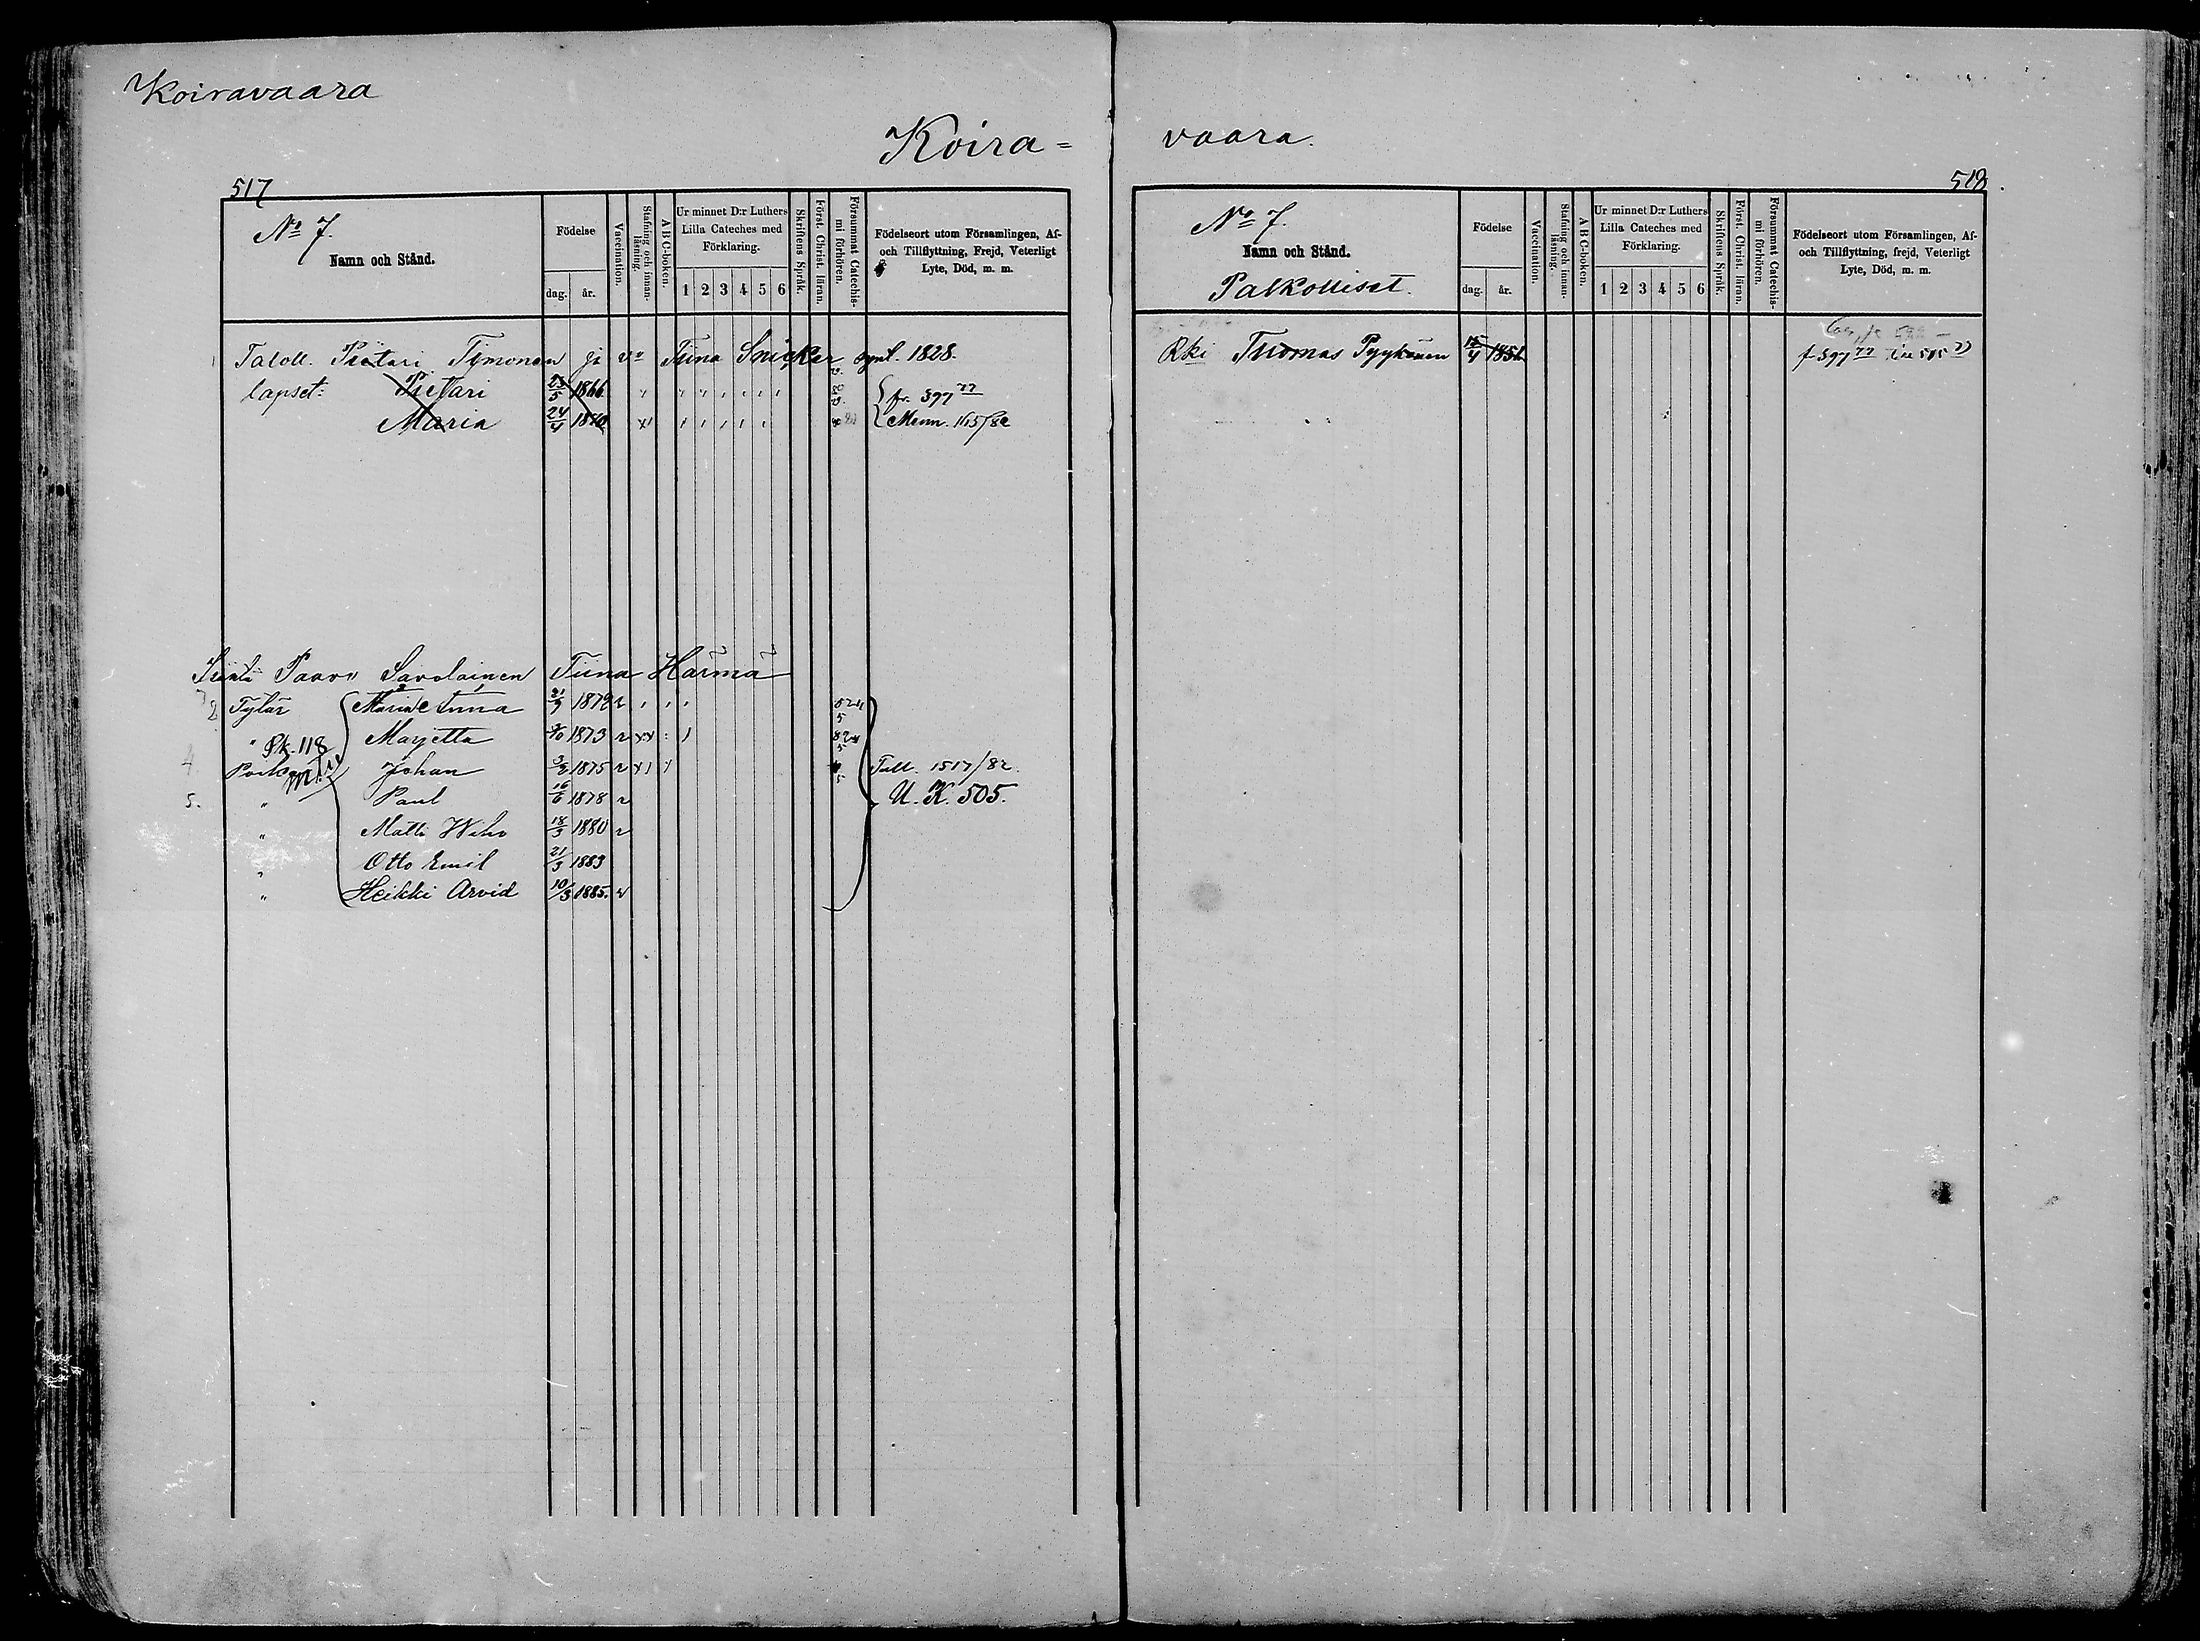 Koiravaara
Koira=
517
No 7.
Namn och Stånd.
Födelse
dag. år.
Vaccination.
Stafning och innan-läsning.
A B C-boken.
Ur minnet D:r Luthers Lilla Cateches med Förklaring.
1 2 3 4 5 6
Skriftens Språk.
Först. Christ. läran.
Försummat Catechis-mi förhören.
Födelseort utom Församlingen, Af- och Tillflyttning, Frejd, Veterligt Lyte, Död, m. m.
Taloll. Pietari Tymonen ja vo Tiina Snicker synt. 1828.
lapset: Pietari 23/5 1866 fr. 397 77
Maria 24/4 1870 Menn. 1615/82
Paavo Savolainen Tiina Härmä
Tytär Maria Tiina 1872
" Pk. 118 Marjetta 1873
Poika Johan 1875 Tull. 1517/82.
" Paul 16/6 1878 U. K. 505.
" Matti 18/3 1880
" Otto Emil 21/3 1883
" Heikki Arvid 10/3 1885.
vaara.
518.
No 7.
Namn och Stånd.
Palkolliset.
Födelse
dag. år.
Vaccination.
Stafning och innan-läsning.
A B C-boken.
Ur minnet D:r Luthers Lilla Cateches med Förklaring.
1 2 3 4 5 6
Skriftens Språk.
Först. Christ. läran.
Försummat Catechis-mi förhören.
Födelseort utom Församlingen, Af- och Tillflyttning, frejd, Veterligt Lyte, Död, m. m.
Rki Thomas Pyykönen 1851 f 397 77